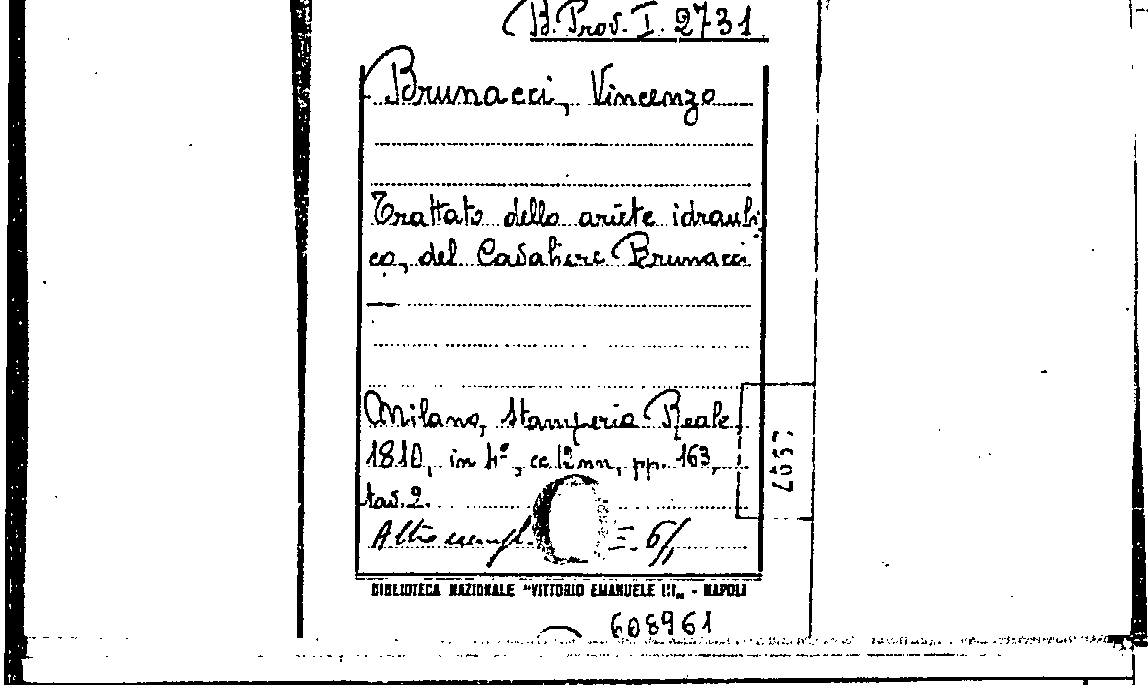 B. Prov. I. 2731
Brunacci, Vincenzo
Trattato dello ariete idrauli
co, del Cavaliere Brunacci
Milano, Stamperia Reale
1810, in 4º, cc 12 nn, pp. 163,
tav. 2.
Altro esempl. E. 6/
BIBLIOTECA NAZIONALE "VITTORIO EMANUELE III„ - NAPOLI
608961